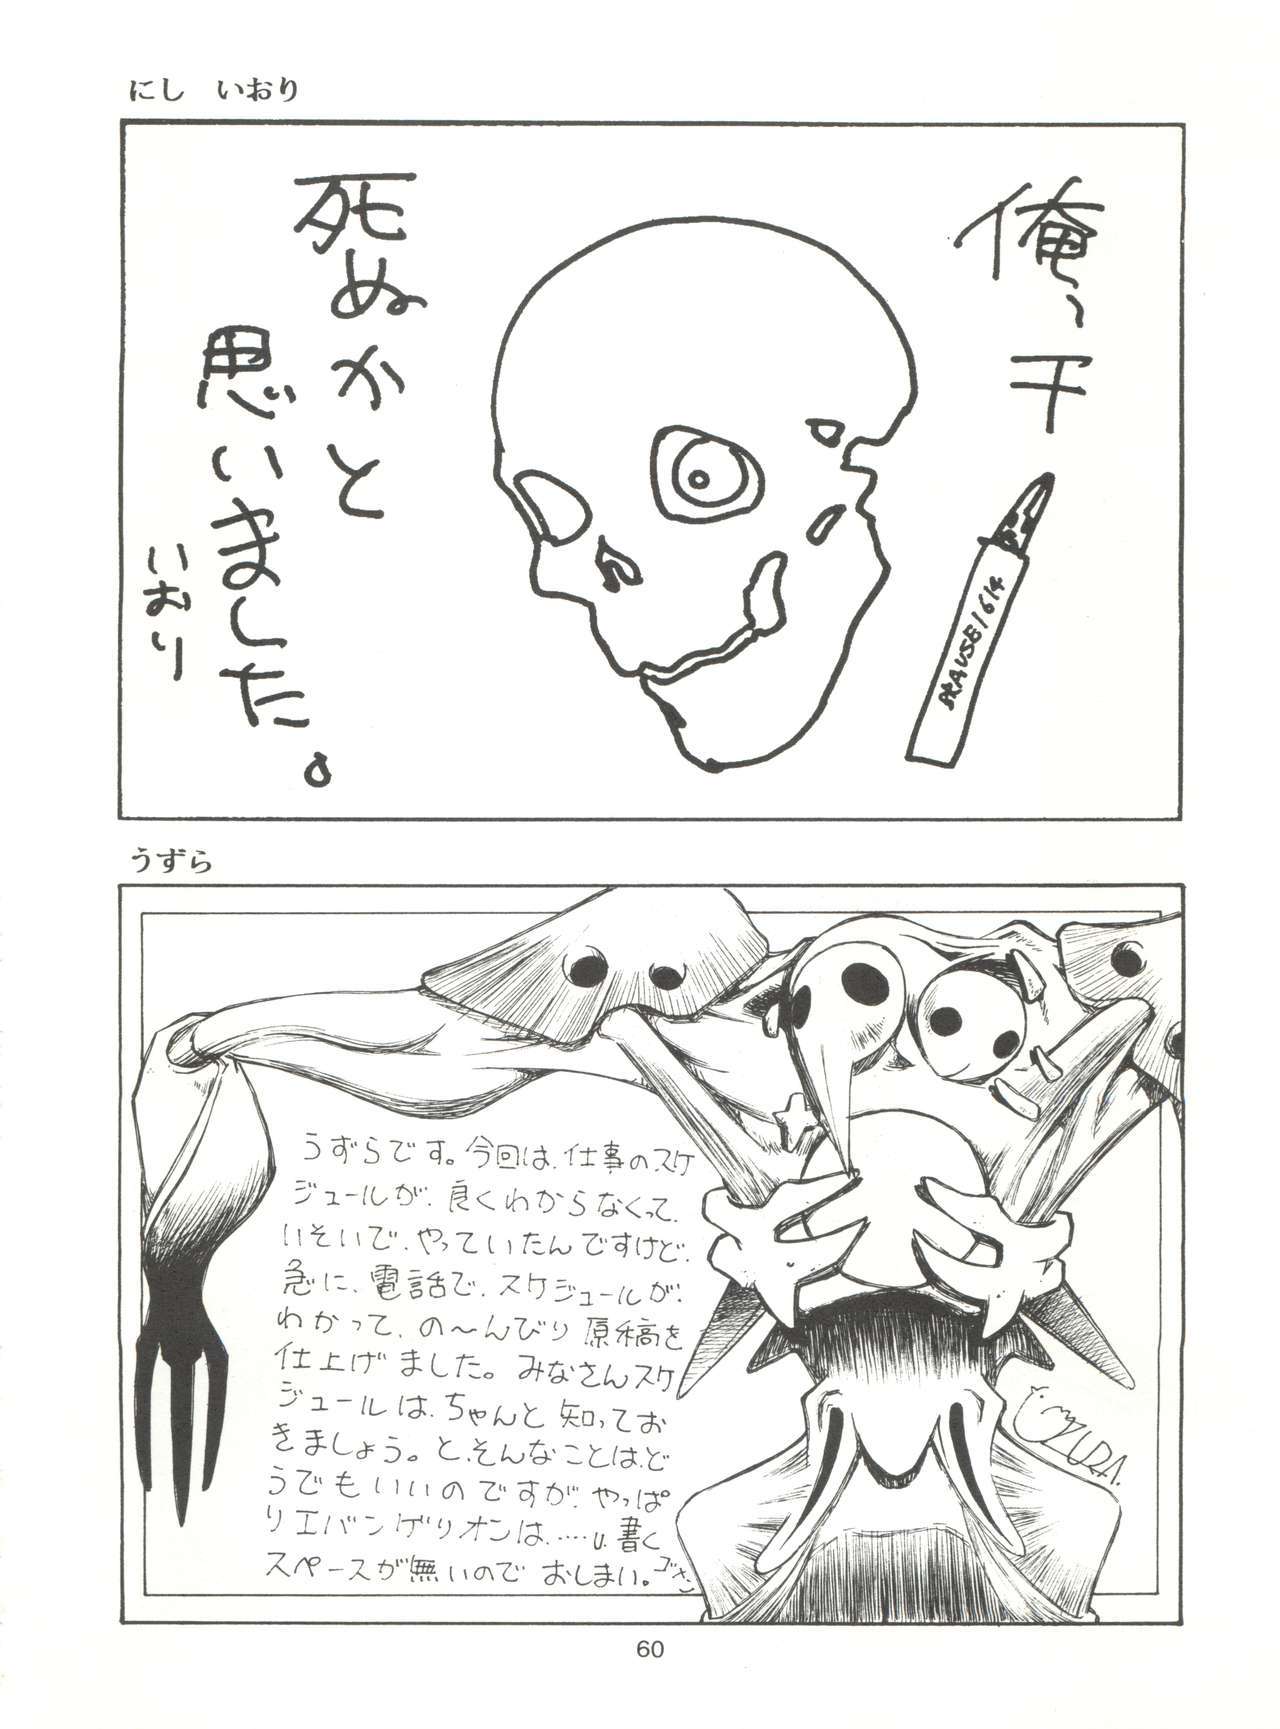 にし いおり
俺、干
死ぬかと
思いました。
いおり
BRAUSE1614
うずら
うずらです。今回は、仕事のスケ
ジュールが、良くわからなくって、
いそいで、やっていたんですけど、
急に、電話で、スケジュールが、
わかって、の〜んびり原稿を
仕上げました。みなさんスケ
ジュールは、ちゃんと知ってお
きましょう。と、そんなことは、ど
うでもいいのですが、やっぱ
りエバンゲリオンは、……書く
スペースが無いのでおしまい。ゴメン
UZURA.
60